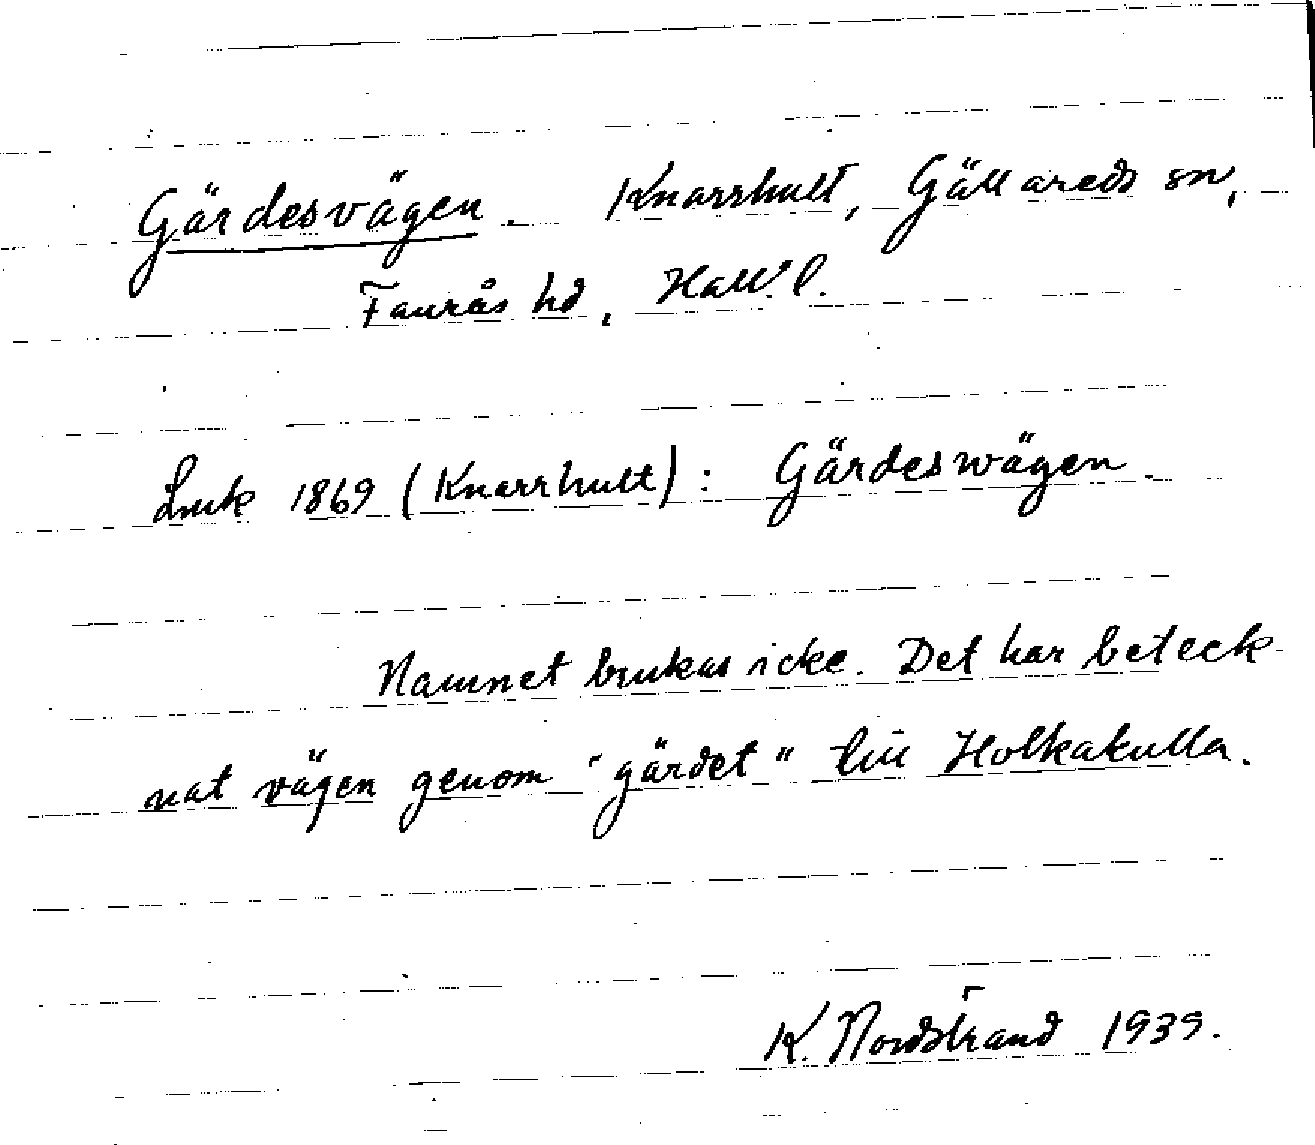 Gärdesvägen. Knarrhult, Gällareds sn,
Faurås hd, Hall. l.
Lmk 1869 (Knarrhult): Gärdeswägen.
Namnet brukas icke. Det har beteck-
nat vägen genom "gärdet" till Holkakulla.
K. Nordstrand 1939.